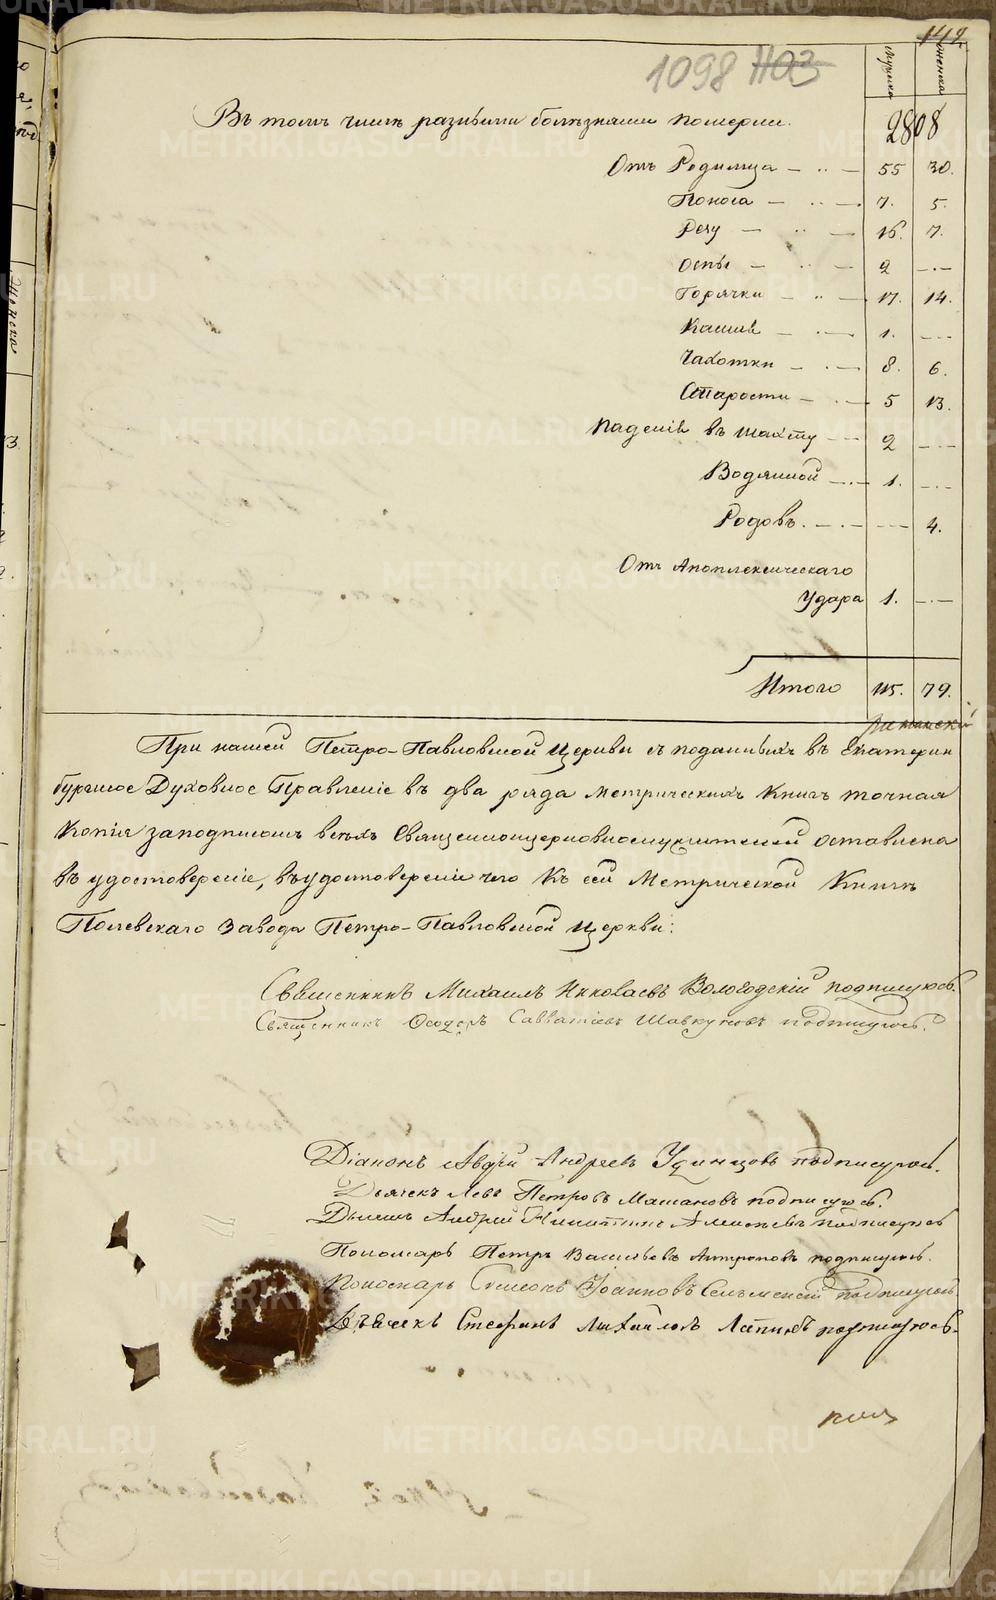 142.
1098 1103
мужска
женска
Въ томъ числѣ разными болѣзнями померли.
2808
Отъ Родимца 55 30.
Поноса 7. 5.
Резу 16. 7.
Оспы 2
Горячки 17. 14.
Кашля 1.
Чахотки 8. 6.
Старости 5 13.
Паденія въ шахту 2
Водяной 1.
Родовъ. 4.
Отъ Апоплексическаго
Удара 1.
Итого 115. 79.
При нашей Петро-Павловской Церкви съ поданныхъ въ Екатерин
бургское Духовное Правленіе въ два ряда Метрическихъ Книгъ точная
Копія заподписомъ всѣхъ Священноцерковнослужителей оставлена
въ удостовереніе, въ удостовереніе чего Къ сей Метрической Книгѣ
Полевскаго Завода Петро-Павловской Церкви:
Священникъ Михаилъ Николаевъ Вологодскій подписуюсь.
Священникъ Ѳеодоръ Савватіевъ Шавкуновъ подписуюсь.
Діаконъ Авдій Андреевъ Удинцовъ подписуюсь.
Дьячекъ Левъ Петровъ Машановъ подписуюсь.
Андрей подписуюсь
Пономарь Петръ Васильевъ Антроповъ подписуюсь.
Пономарь Симеонъ Іоанновъ подписуюсь
Дьячекъ Стефанъ Михайловъ Лапинъ подписуюсь.
METRIKI.GASO-URAL.RU